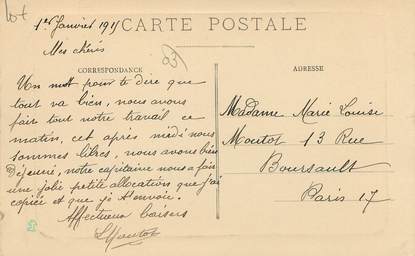 Lot
1er Janvier 1915
CARTE POSTALE
Mes chéris
CORRESPONDANCE
Un mot pour te dire que
tout va bien, nous avons
fait tout notre travail ce
matin, cet après midi nous
sommes libres, nous avons bien
Déjeuné, notre capitaine nous a fais
une jolie petite allocations que j'ai
copiée et que je t'envoie.
Affectueux baisers
LMoutot
ADRESSE
Madame Marie Louise
Moutot 13 Rue
Boursault
Paris 17